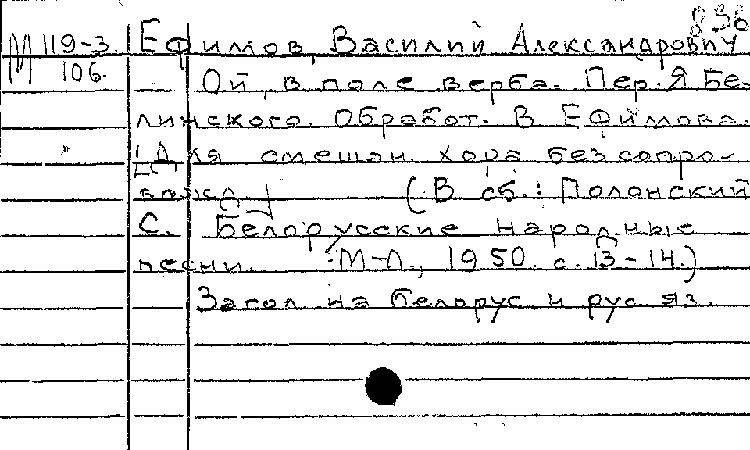 836
М 119-3 Ефимов, Василий Александрович
106. — Ой, в поле верба. Пер. Я Бе-
линского. Обработ. В Ефимова.
[Для смешан хора без сопро-
вожд] (В сб.: Полонский
С. Белорусские народные
песни. М-Л., 1950. с. 13-14.)
Загол на белорус и рус яз.